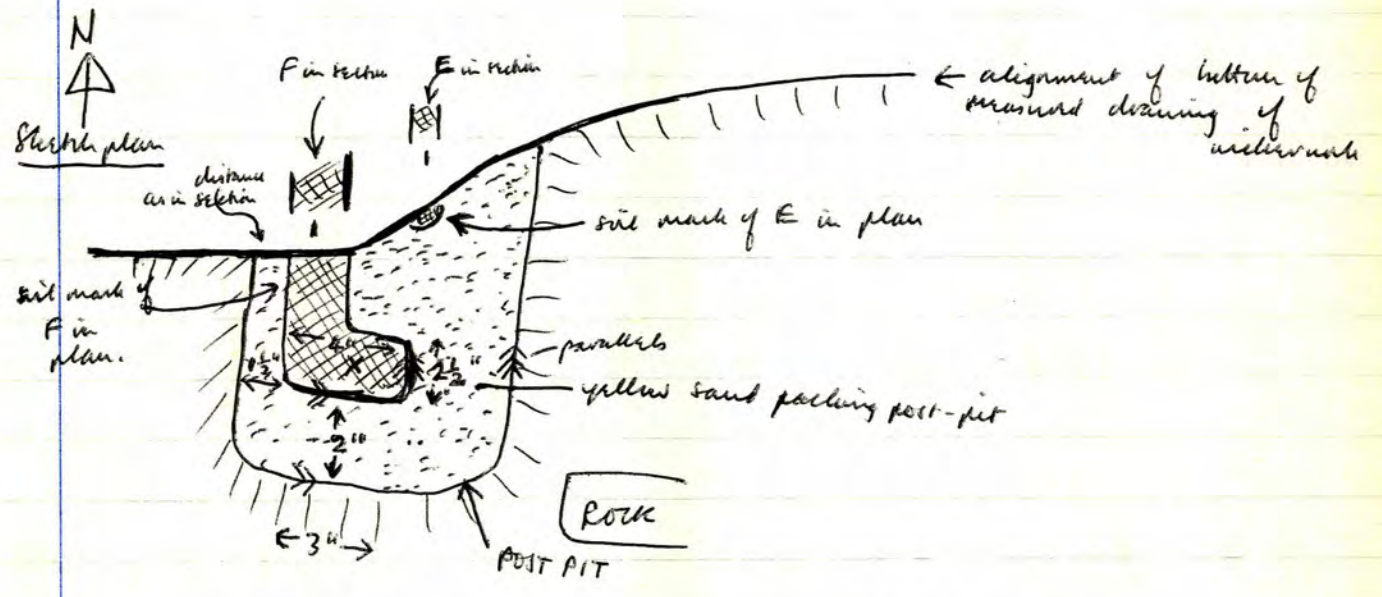 N
Sketch plan
F in section
E in section
← alignment of bottom of
measured drawing of
wickerwork
distance
as in section
soil mark of E in plan
soil mark of
F in
plan.
4"
X
1½"
2½"
parallels
yellow sand packing post-pit
2"
ROCK
3"
POST PIT